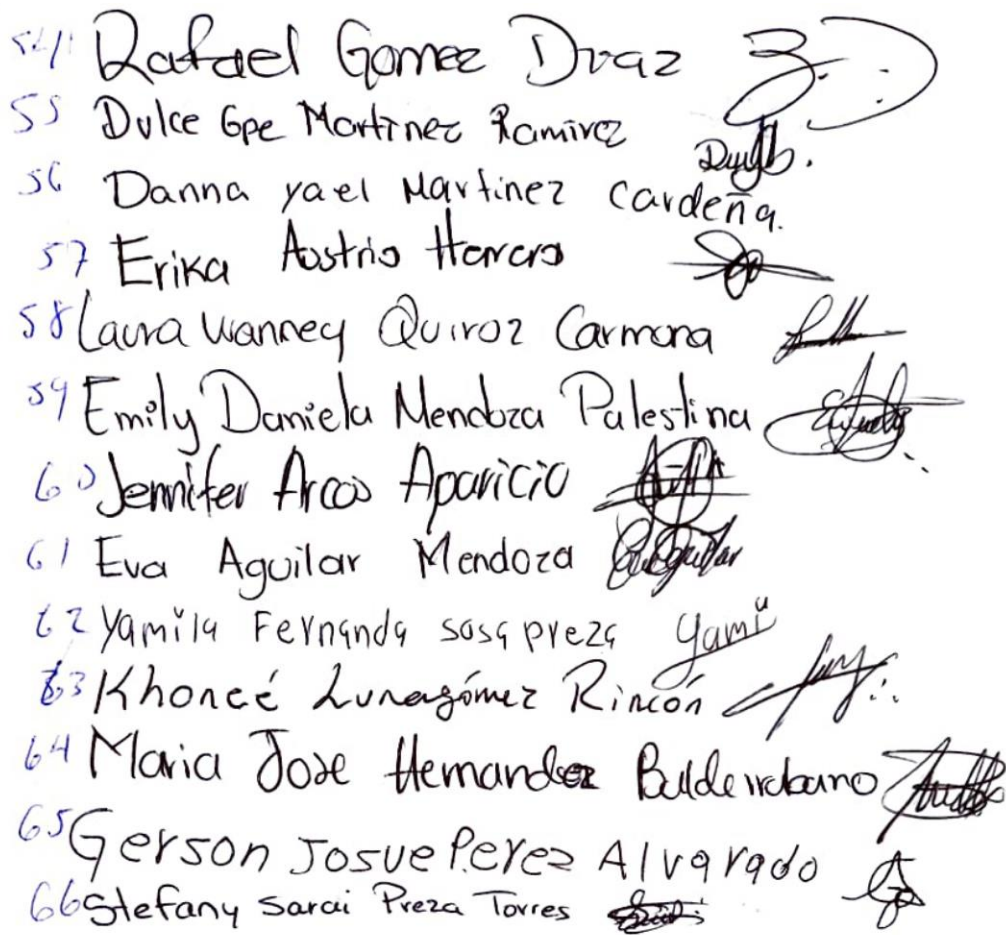 54 Rafael Gomez Diaz
55 Dulce Gpe Martinez Ramirez
56 Danna yael Martinez Cardeña.
57 Erika Austria Herrera
58 Laura Wanney Quiroz Carmona
59 Emily Daniela Mendoza Palestina
60 Jennifer Arcos Aparicio
61 Eva Aguilar Mendoza
62 Yamila Fernanda sosa preza Yami
63 Khoneé Lunagómez Rincón
64 Maria Jose Hernandez
65 Gerson Josue Perez Alvarado
66 Stefany Sarai Preza Torres